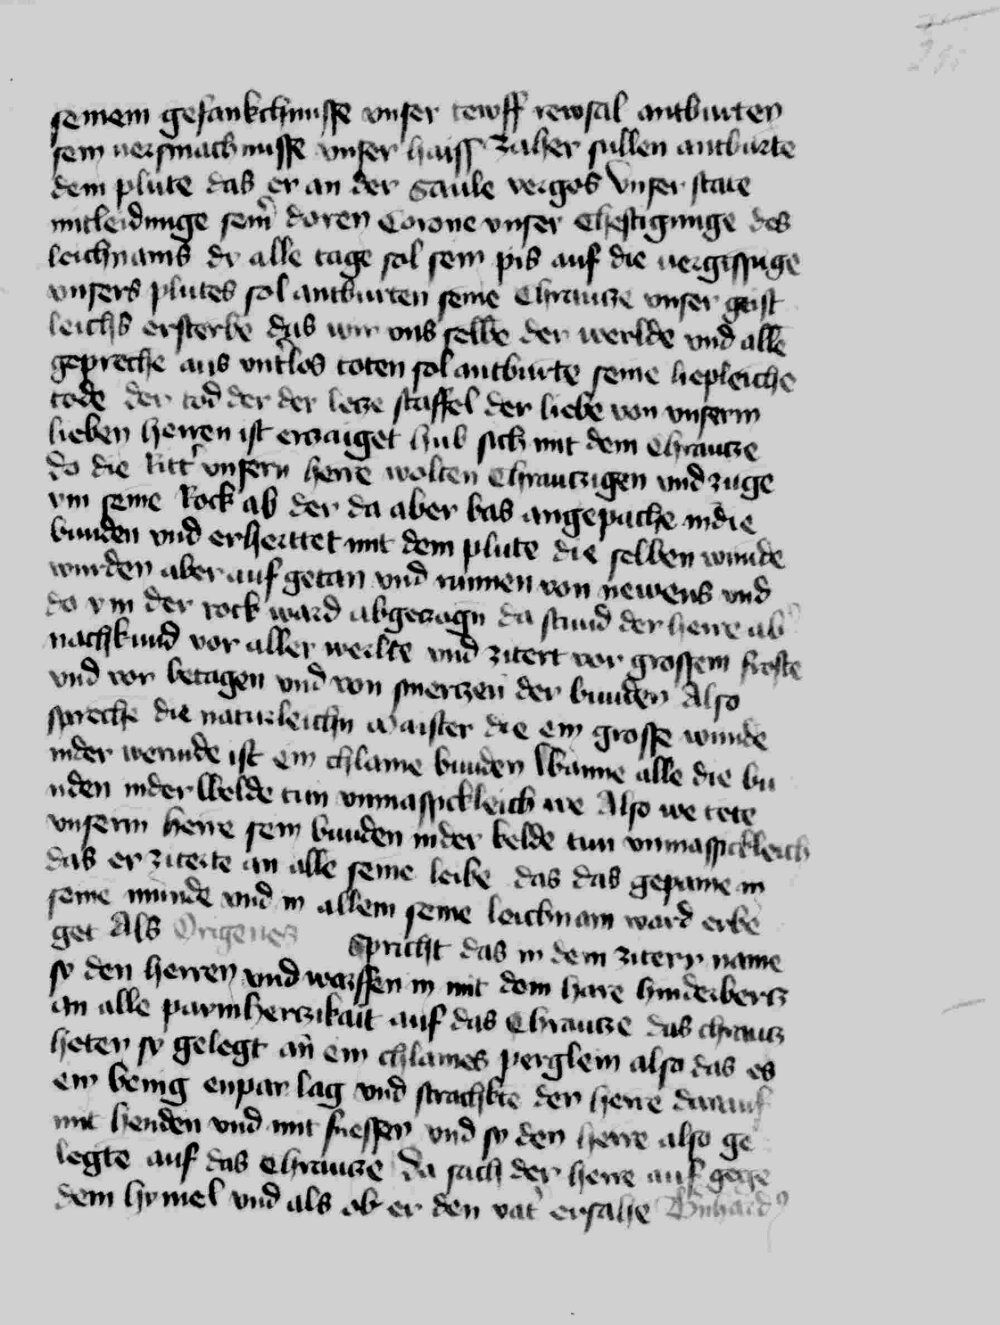 seinem gefankchnusse vnser tewff rewsal antburten
sein uersmachnusse vnser haiss zaher sullen antburte
dem plute das er an der Saule vergos Vnser state
mitleidunge seinr doren Corone vnser Chestigunge des
leichnams dr alle tage sol sein pis auf die uergissuge
vnsers plutes sol antburten seine Chrautze vnser geist
leichs ersterbe das wir vns selbe der werlde vnd alle
gepreche aus vntlos toten sol antburte seine liepleiche
tode der tod der der letze staffel der liebe von vnserm
lieben herren ist erzaiget hub sich mit dem Chrautze
do die Ritt vnsern herre wolten Chrautzigen vnd zuge
ym seine Rock ab der da aber bas angepache in die
bunden vnd erherttet mit dem plute die selben wunde
wurden aber auf getan vnd runnen von newens vnd
do ym der rock ward abgezogn da stund der herre ab
nachkund vor aller werlte vnd zitert vor grossem froste
vnd vor betagen vnd von smertzen der bunden Also
spreche die naturleichn maister die ein grosse wunde
inder werinde ist ein chlaine bunden Wanne alle die bu
nden inder Welde tun vnmassickleich we Also we tete
vnserm herre sein bunden inder kelde tun vnmassickleich
das er zitete an alle seine leibe das das gepaine in
seine munde vnd in allem seine leichnam ward erbe
get Als Origenes Spricht das in dem zitern name
sy den herren vnd warffen in mit dem hare hinderbertz
an alle parmhertzikait auf das Chrautze das chrautz
heten sy gelegt an ein chlaines perglein also das es
ein benig enpar lag vnd strachkte der herre darauf
mit henden vnd mit fuessen vnd sy den herre also ge
legte auf das Chrautze Da sach der herre auf gege
dem hymel vnd als ob er den vat ersahe